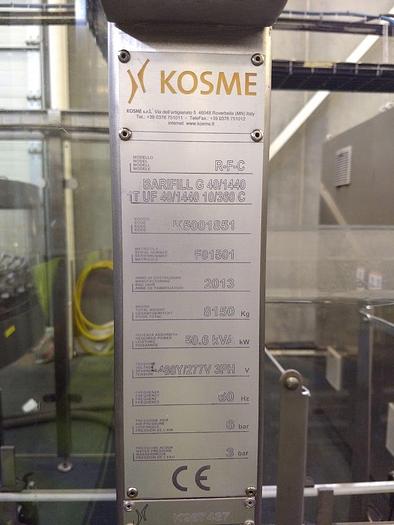 KOSME
KOSME s.r.l. Via dell'artigianato 5 46048 Roverbella (MN) Italy
Tel.: +39 0376 751011 - TeleFax.: +39 0376 751012
internet: www.kosme.it
MODELLO
MODEL
MODELL
MODELE
R-F-C
BARIFILL G 40/1440
1T UF 40/1440 10/360 C
CODICE
CODE
CODE
CODE
K5001851
MATRICOLA
SERIAL NUMBER
SERIENNUMMER
MATRICULE
F01501
ANNO DI COSTRUZIONE
MANUFACTURING
BAUJAHR
ANNE DE FABRICATION
2013
TOTAL WEIGHT
GESAMTGEWICHT
POIDS TOTAL
8150 Kg
POTENZA ASSORBITA
REQUIRED POWER
LEISTUNG
PUISSANCE
50.6 kVA
TENSIONE
VOLTAGE
SPANNUNG
TENSION
480Y/277V 3PH V
FREQUENZA
FREQUENCY
FREQUENZ
FREQUENCE
60 Hz
PRESSIONE ARIA
AIR PRESSURE
LUFTDRUCK
PRESSION DE L'AIR
6 bar
PRESSIONE ACQUA
WATER PRESSURE
WASSERDRUCK
PRESSION DE L'EAU
3 bar
CE